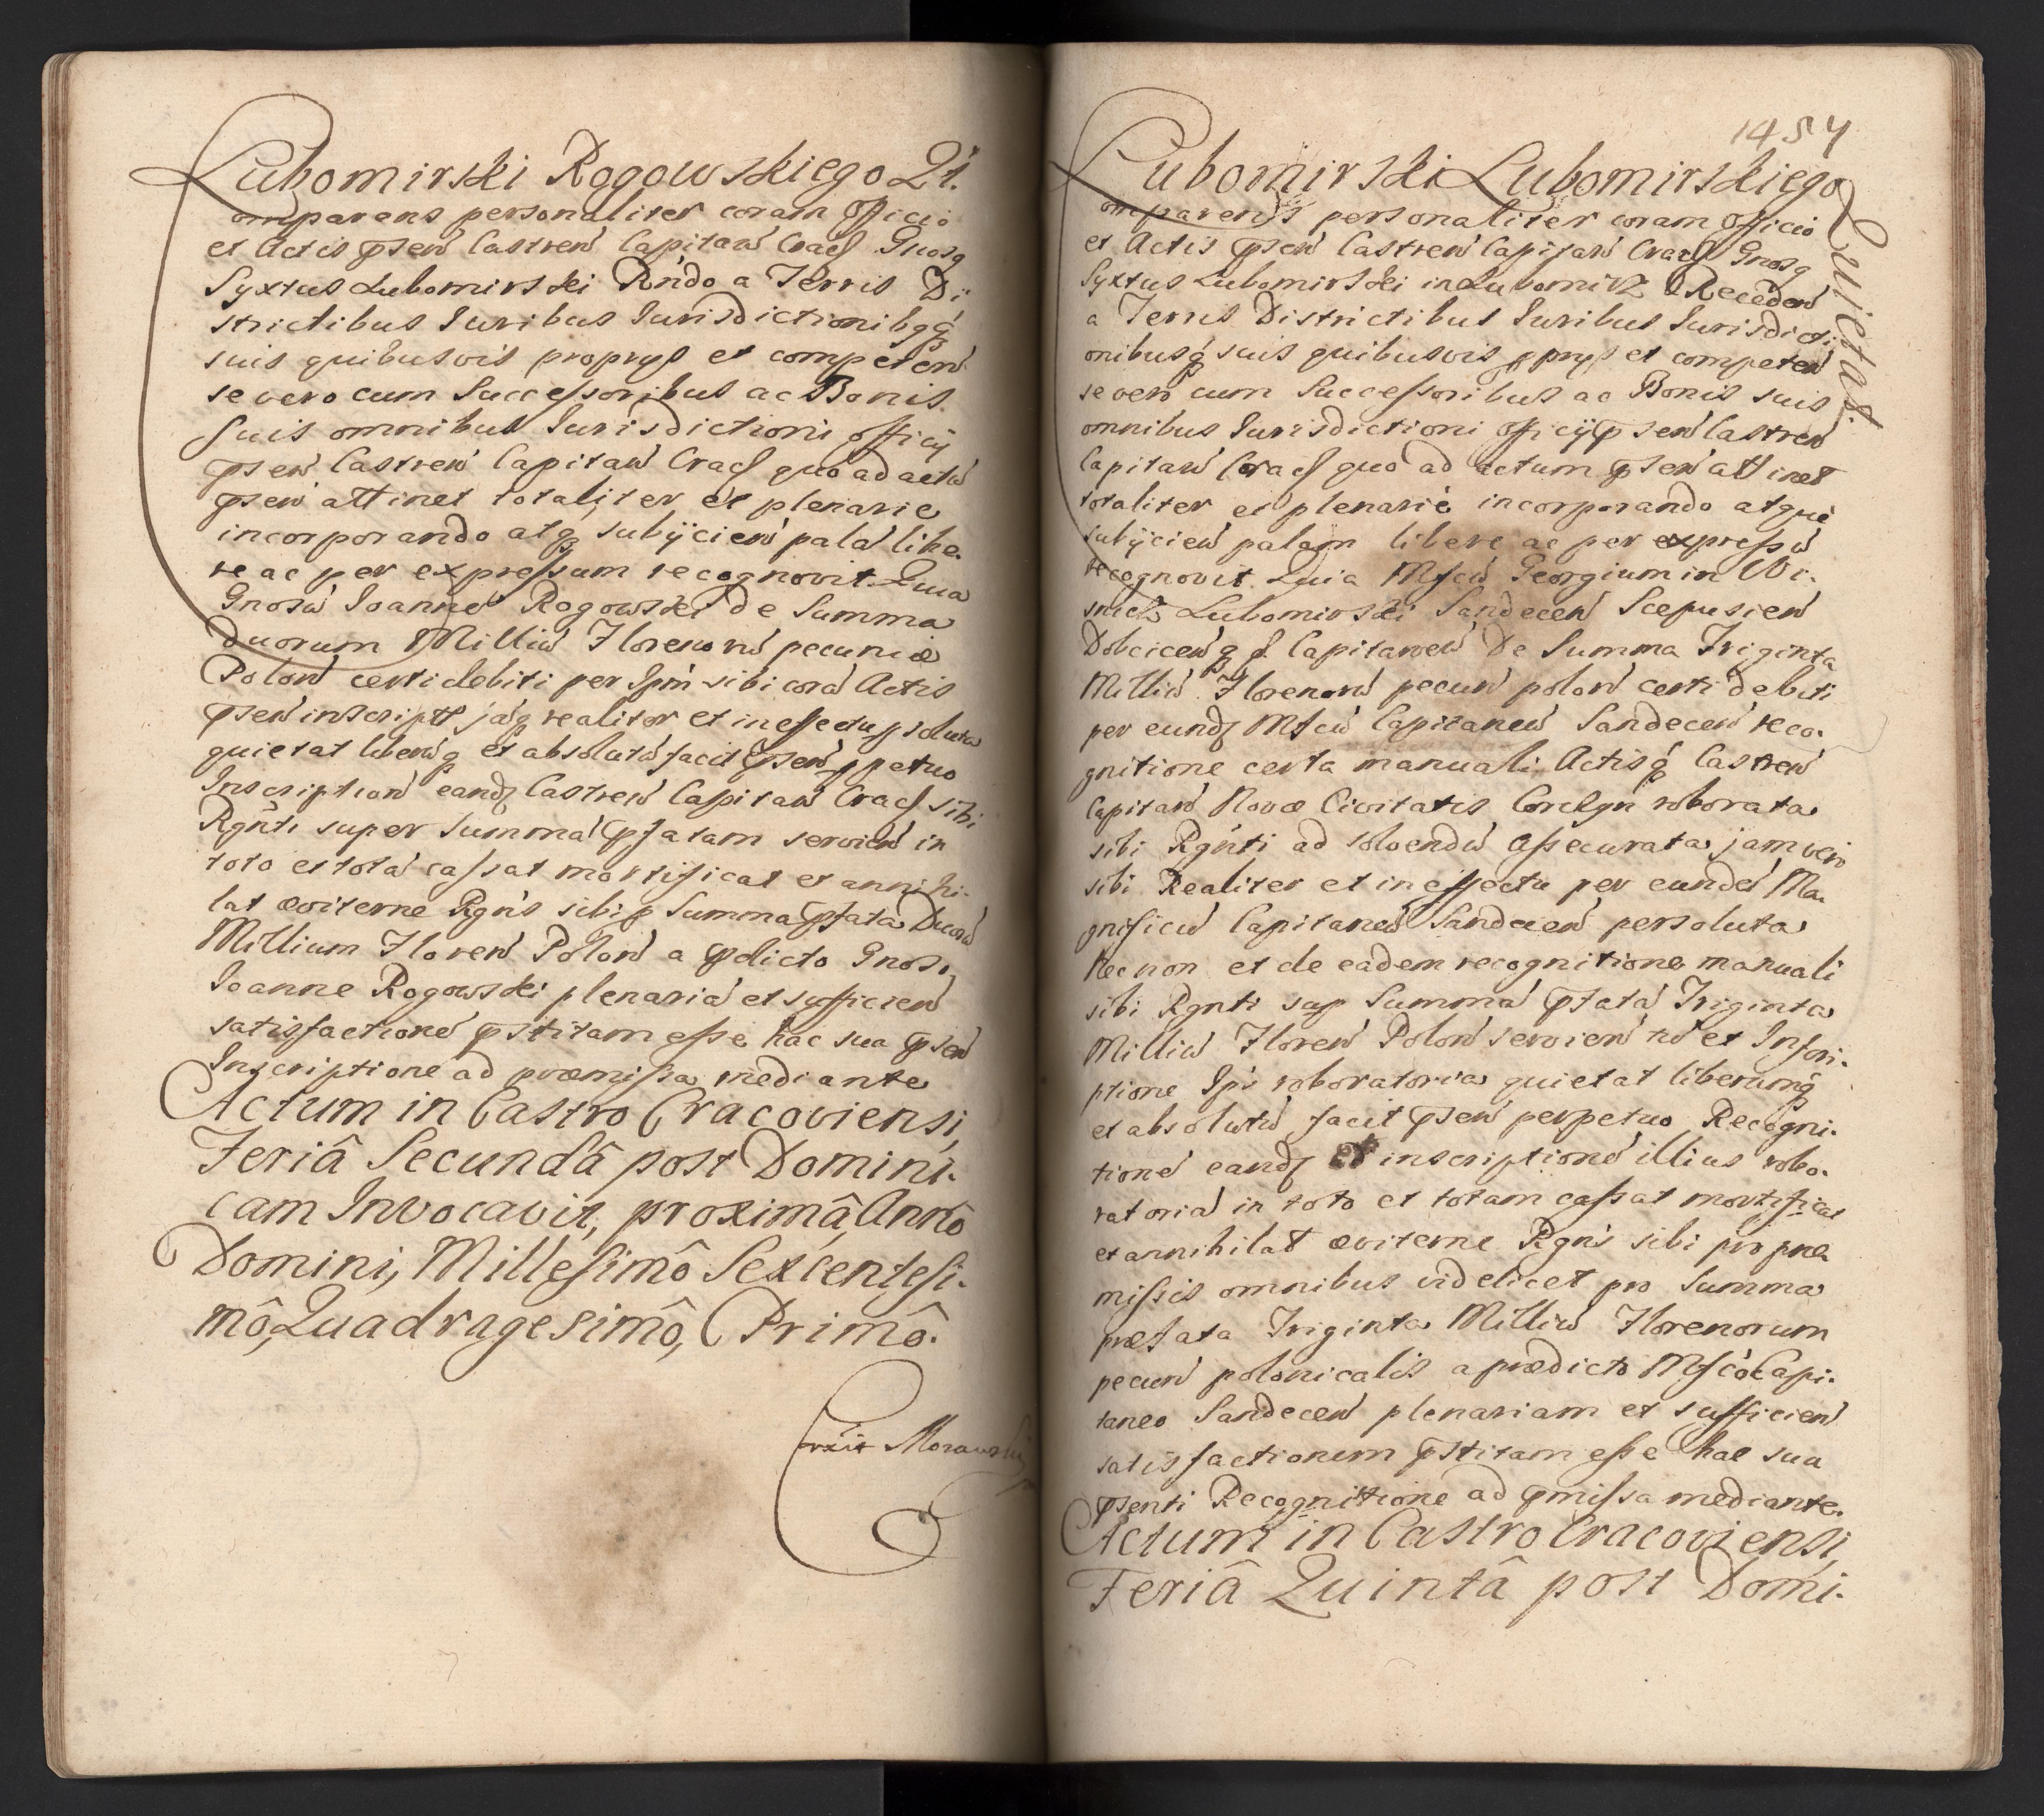 Lubomirski Rogowskiego Qt.
Comparens personaliter coram officio
et Actis pnsen Castren Capitan Cracs Gnosq
Syxtus Lubomirski Rndo a Terris Di
strictibus Iuribus Iurisdictionibqq
suis quibusvis proprys et competen
se vero cum Successoribus ac Bonis
suis omnibus Iurisdictioni officy
psen Castren Capitan Cracs quo ad actu
psen attinet totaliter et plenarie
incorporando atq subÿcien pala libe.
re ac per expressum recognovit. Quia
Gnosu Joanne Rogowski de Summa
duorum Milliu Florenoru pecuniæ
Polon certi debiti per Ipm sibi cora Actis
psen inscript jaq realiter et in effectu psoluta
quietat liberuq et absolutu facit psen ppetuo
Inscription eandz Castren Capitan Cracs sibi
Rgnti super Summa pfatam servien in
toto et tota cassat mortificat et annihi-
lat æviterne Rgns sibi p Summa pfata Duou
Millium Floren Polon a pdicto Gnoso
Joanne Rogowski plenaria et sufficien
satisfactione pstitam esse hac sua psen
Inscriptione ad præmissa mediante
Actum in Castro Cracoviensi,
Feriâ Secundâ post Domini-
cam Invocavit, proximâ, Anno
Domini, Millesimô Sexcentesi-
mô, Quadragesimô, Primô.
Morawski
1454
Lubomirski Lubomirskiego
Quietat
Comparens personaliter coram officio
et Actis psen Castren Capitan Cracs Gnosq
Syxtus Lubomirski in Lubomirz Receden
a Terris Districtibus Iuribus Iurisdicti
onibusq suis quibusvis pprys et competen
se vero cum Successoribus ac Bonis suis
omnibus Iurisdictioni officÿ psen Castren
Capitan Cracs quo ad actum psen attinet
totaliter et plenarie incorporando atque
subÿcien palam libere ac per expressu
recognovit. Quia Mfcu Georgium in Wi-
snicz Lubomirski Sandecen Scepusien
Dobcicen q s. Capitaneu De Summa Triginta
Milliu Florenoru pecun polon certi debiti
per eundz Mfcu Capitaneu Sandecen reco.
gnitione certa manuali Actisq Castren
Capitan Novæ Civitatis Corcÿn roborata
sibi Rgnti ad solvendu assecurata jam vero
sibi Realiter et in effectu per eunde Ma.
gnificu Capitaneu Sandecen persoluta
Nec non et de eadem recognitione manuali
sibi Rgnti sup Summa pfata Triginta
Milliu Floren Polon servien nd et Inscri-
ptione Ips roboratoria quietat liberumq
et absolutu facit psen perpetuo Recogni-
tione eandz et inscriptione illius robo-
ratoria in toto et totam cassat mortificat
et annihilat æviterne Rgns sibi pro præ
missis omnibus videlicet pro Summa
præfata Triginta Milliu Florenorum
pecun polonicalis a prædicto Mfco Capi-
taneo Sandecen plenariam et sufficien
satisfactionem pstitam esse hac sua
psenti Recognitione ad pmissa mediante.
Actum in Castro Cracoviensi,
Feriâ Quintâ post Domi-